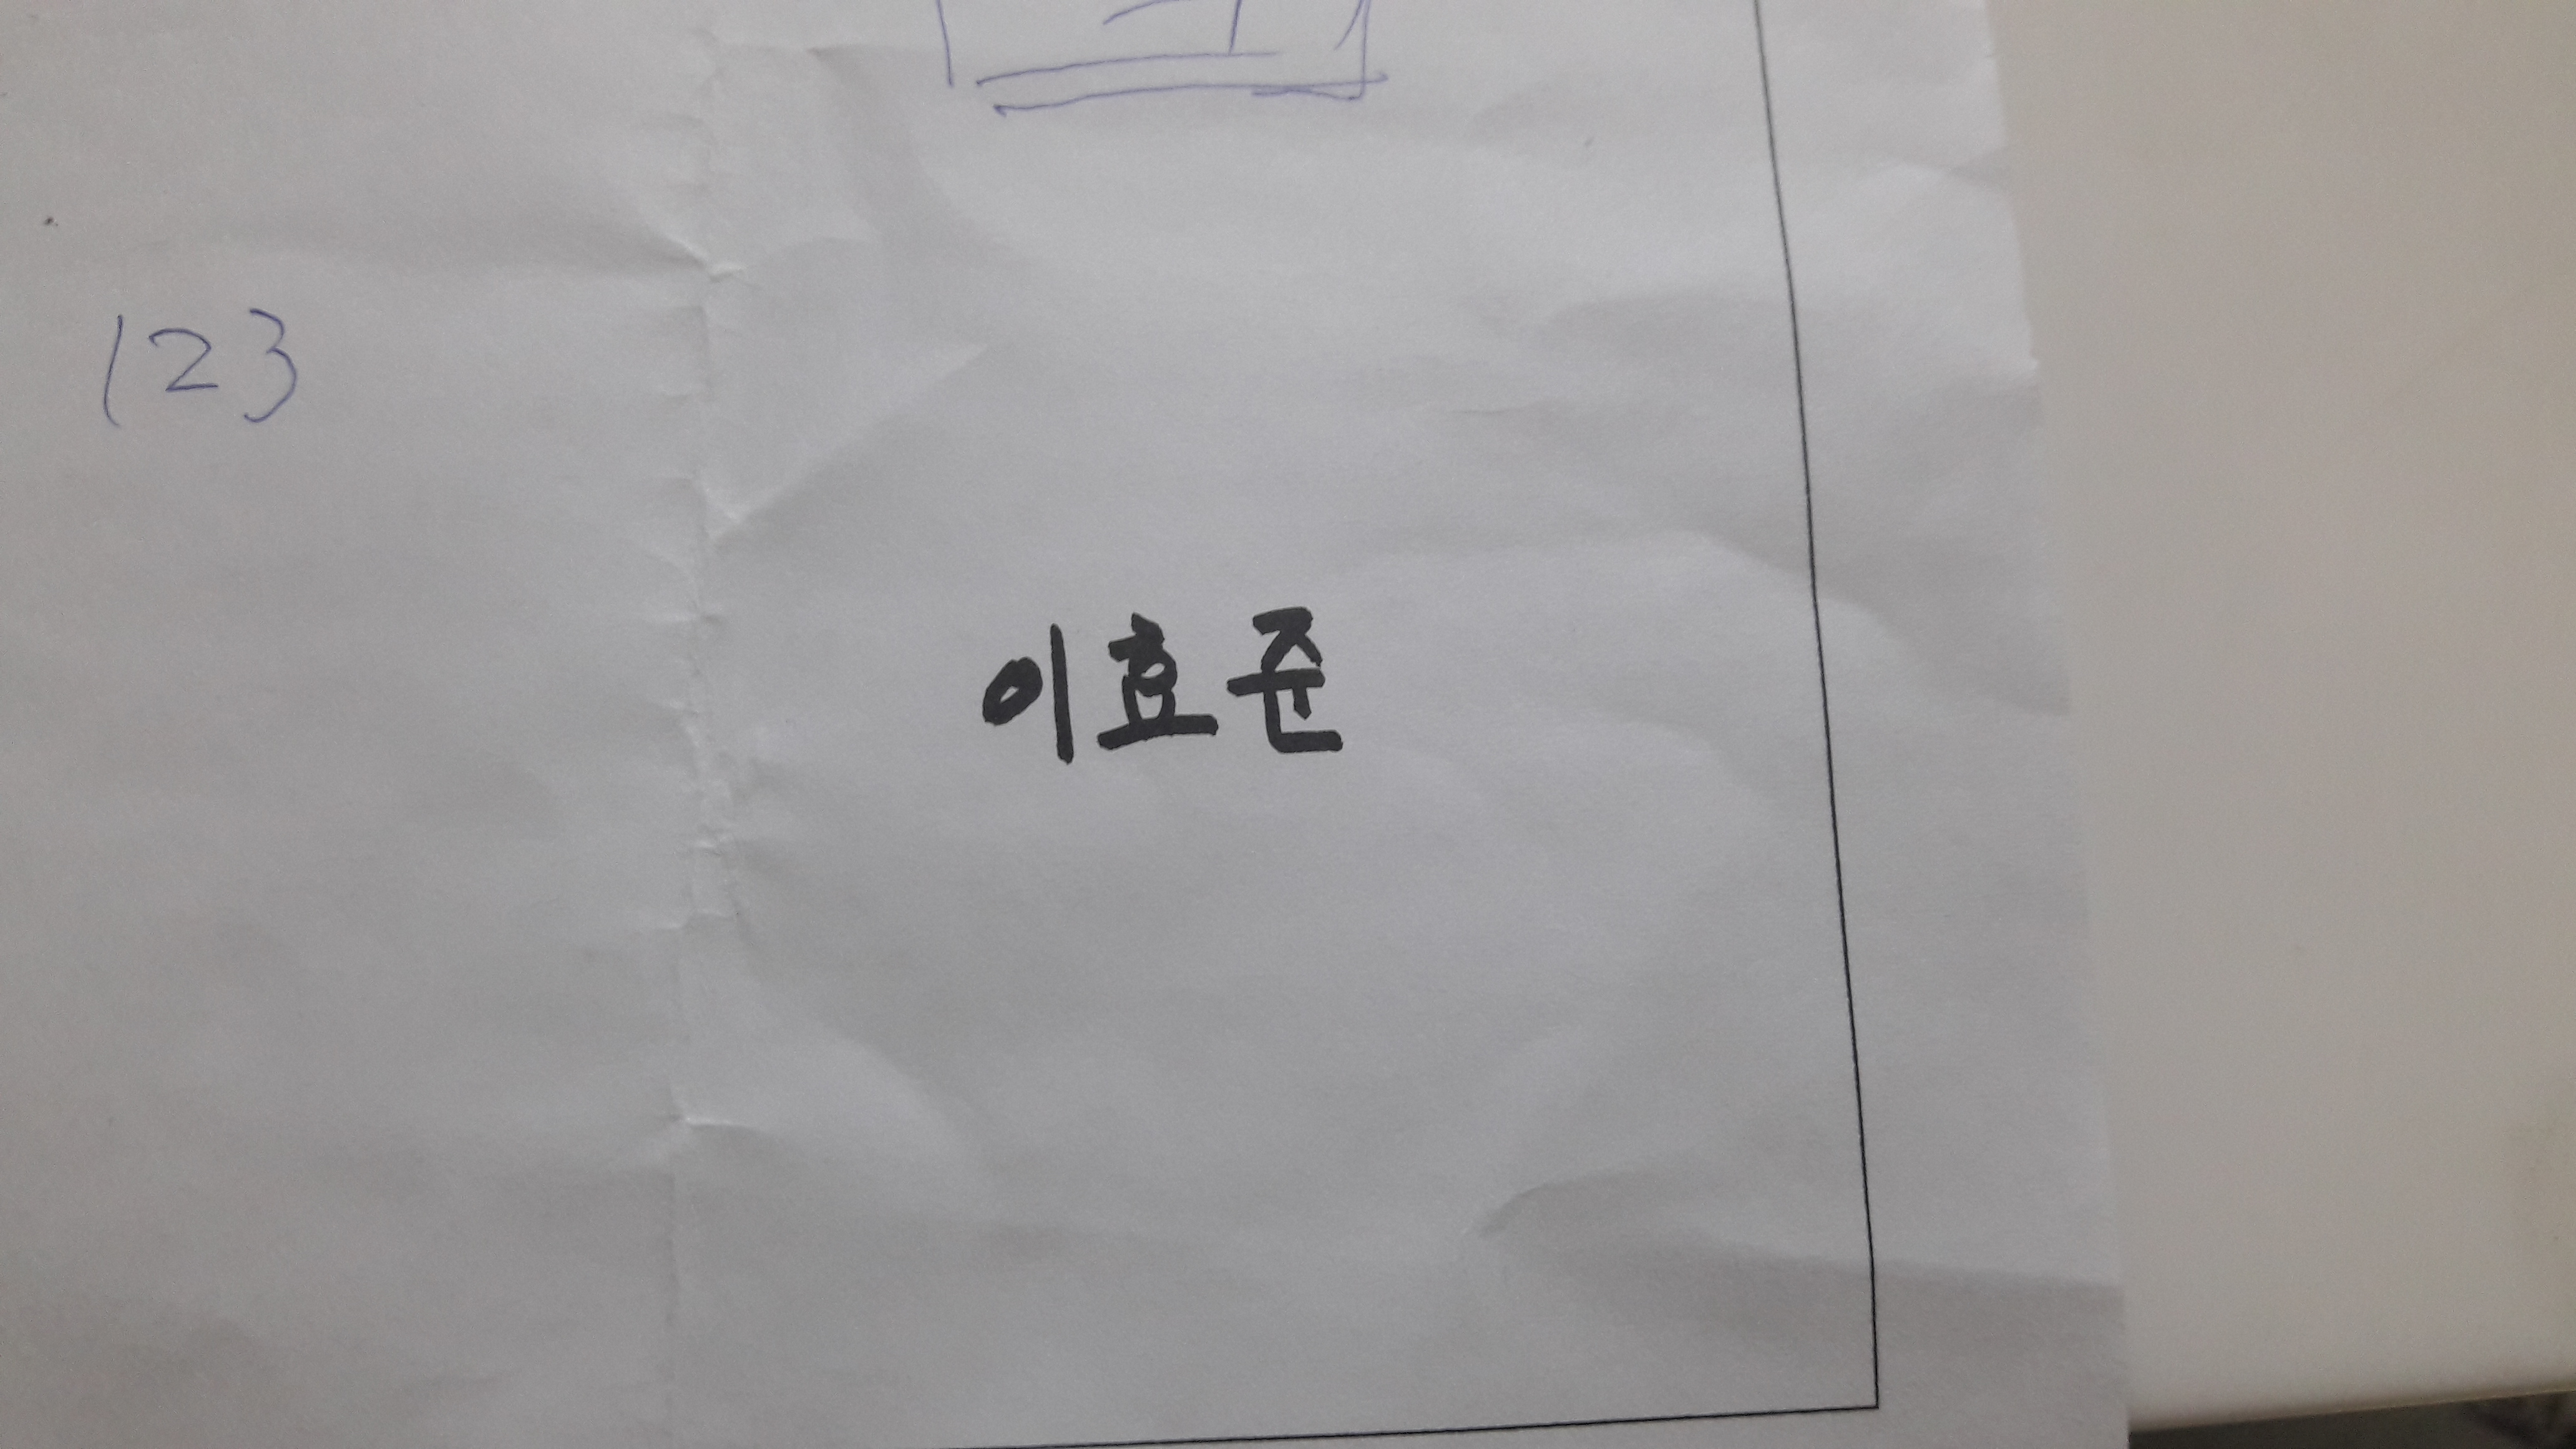 123
이효준